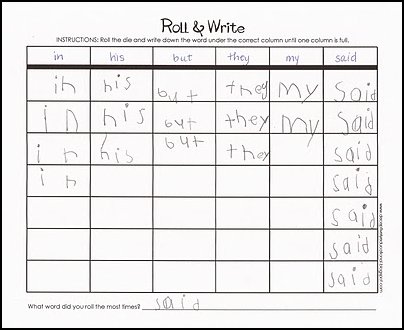 Roll & Write
INSTRUCTIONS: Roll the die and write down the word under the correct column until one column is full.
in his but they my said
in his but they my said
in his but they my said
in his but they said
in said
said
said
said
What word did you roll the most times? said